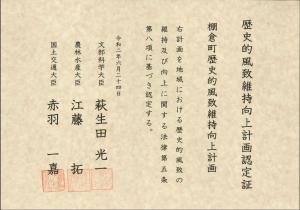 歴史的風致維持向上計画認定証
棚倉町歴史的風致維持向上計画
右計画を地域における歴史的風致の
維持及び向上に関する法律第五条
第八項に基づき認定する。
令和二年六月二十四日
文部科学大臣
萩生田 光一
農林水産大臣
江藤 拓
国土交通大臣
赤羽 一嘉